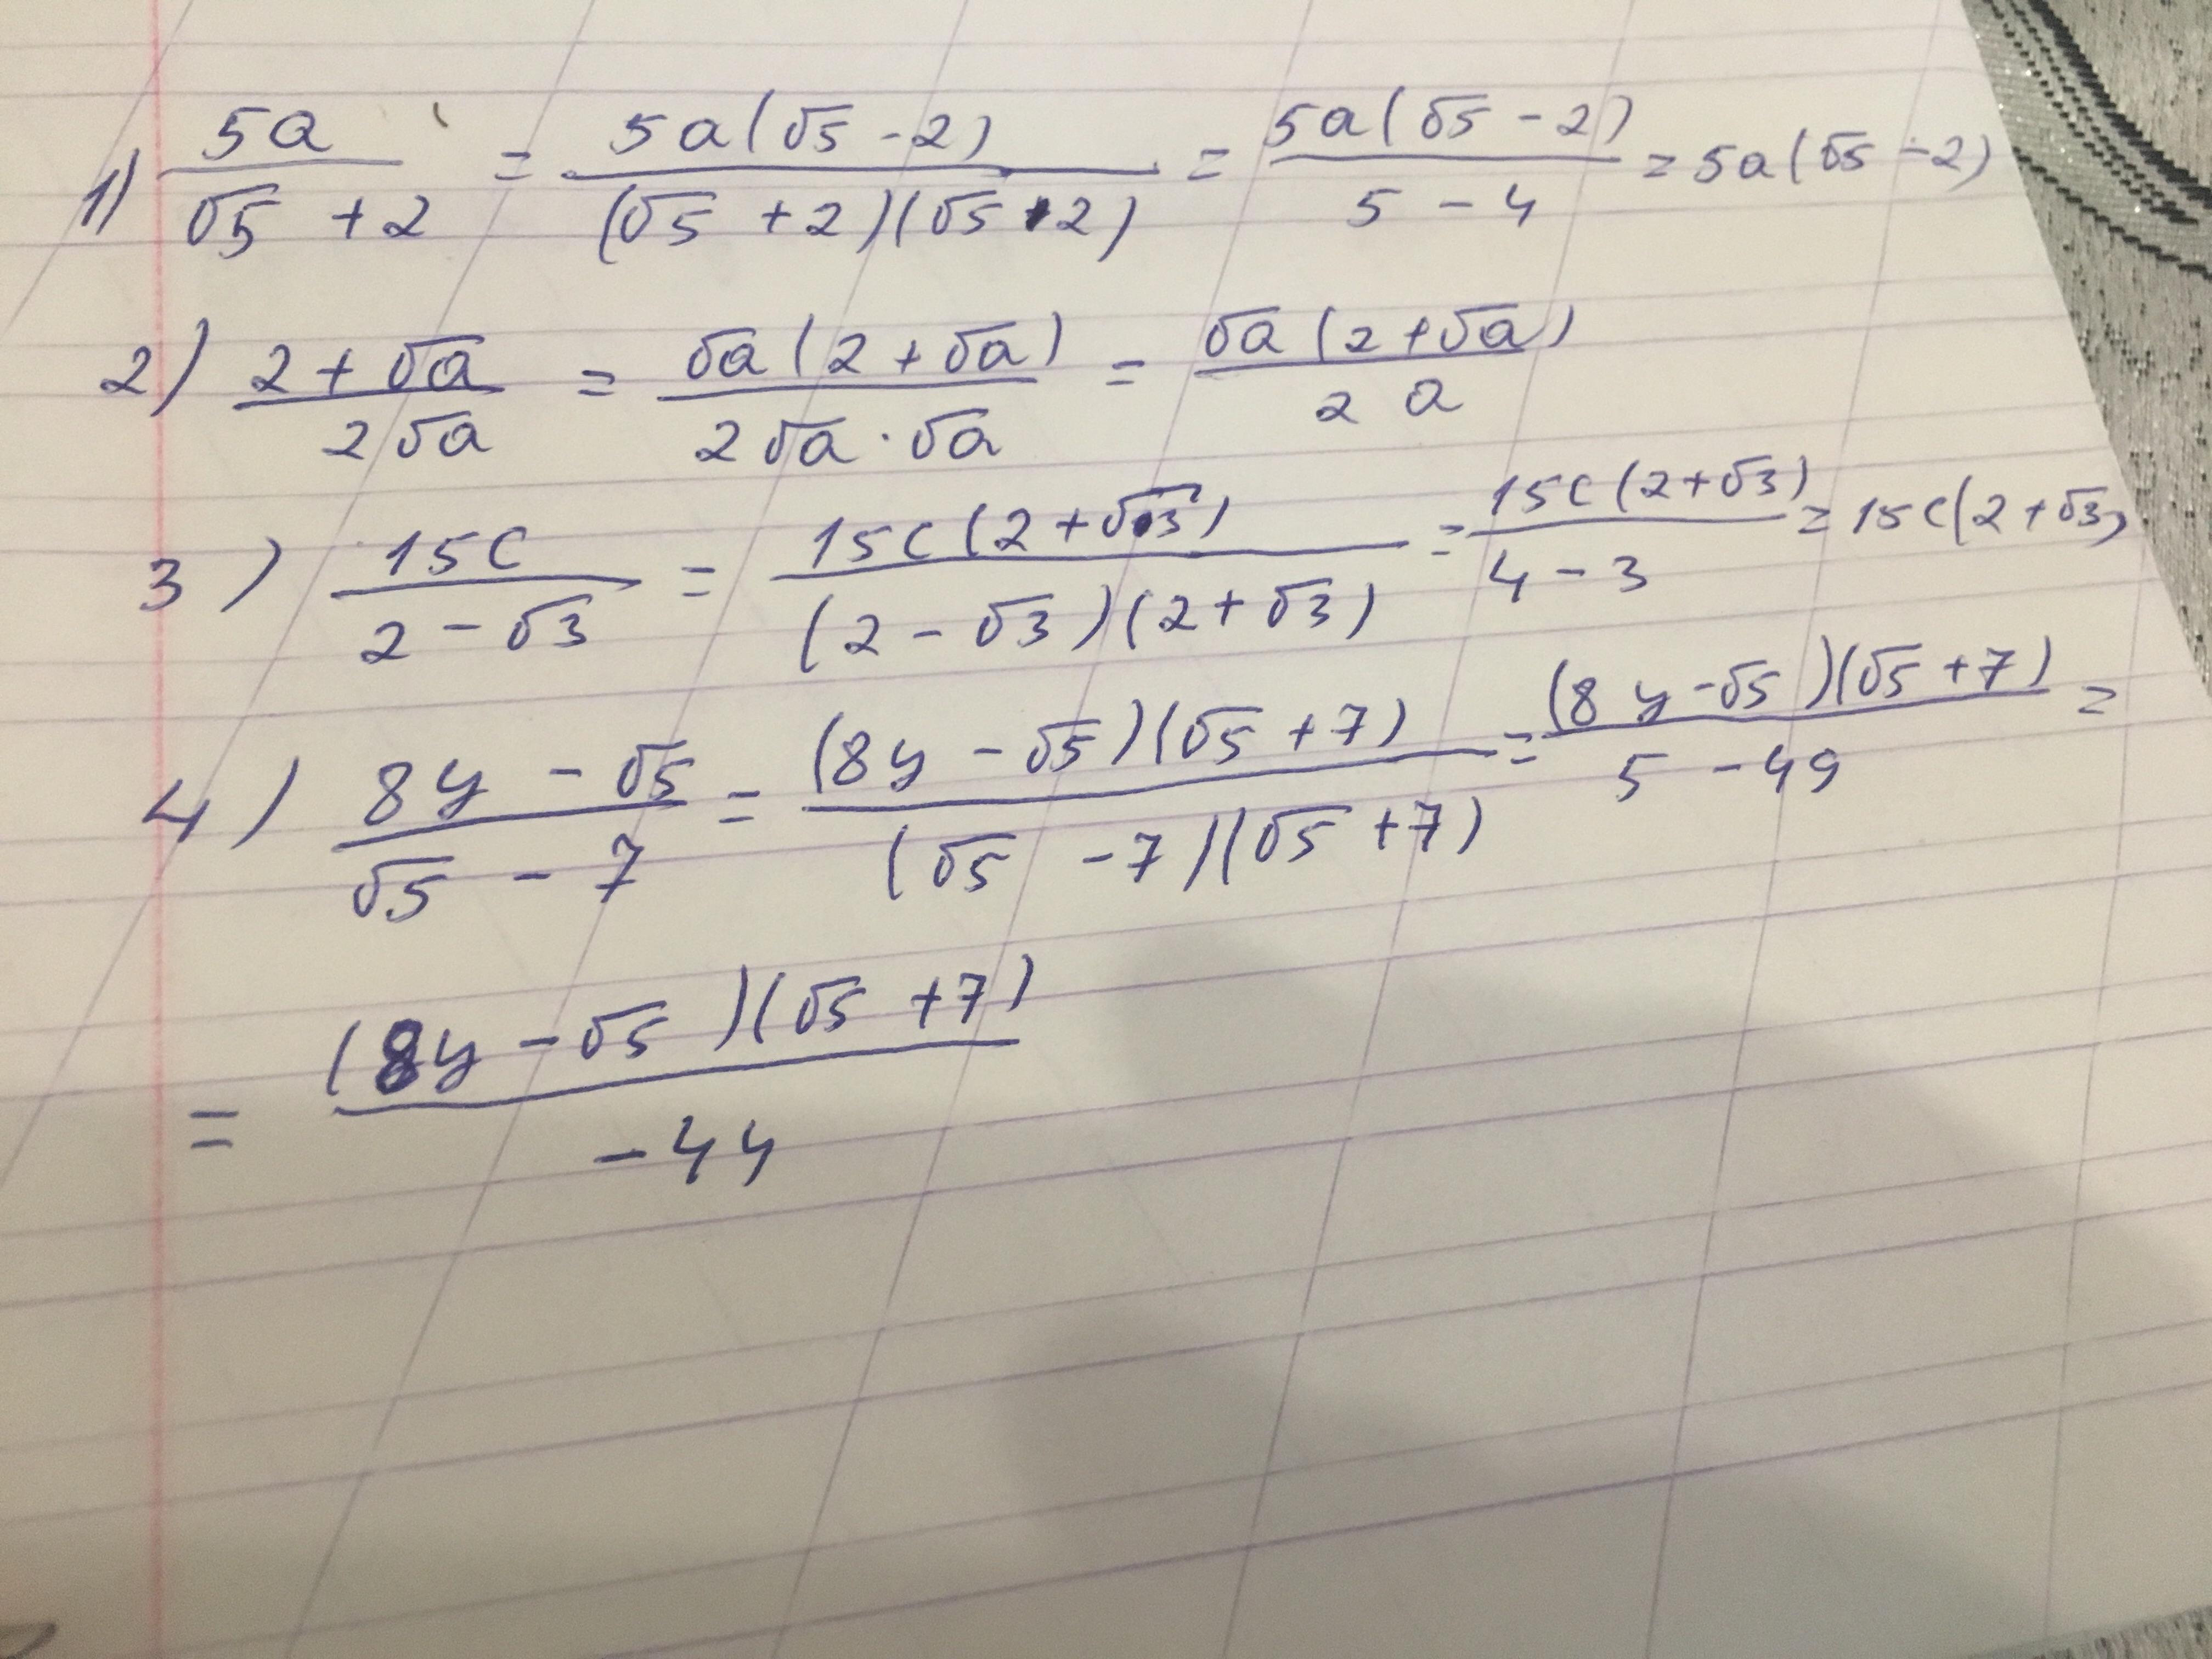 1) 5a/(√5 + 2) = 5a(√5 - 2)/((√5 + 2)(√5 - 2)) = 5a(√5 - 2)/(5 - 4) = 5a(√5 - 2)
2) (2 + √a)/(2√a) = √a(2 + √a)/(2√a · √a) = √a(2 + √a)/(2a)
3) 15c/(2 - √3) = 15c(2 + √3)/((2 - √3)(2 + √3)) = 15c(2 + √3)/(4 - 3) = 15c(2 + √3)
4) (8y - √5)/(√5 - 7) = (8y - √5)(√5 + 7)/((√5 - 7)(√5 + 7)) = (8y - √5)(√5 + 7)/(5 - 49) =
= (8y - √5)(√5 + 7)/(-44)